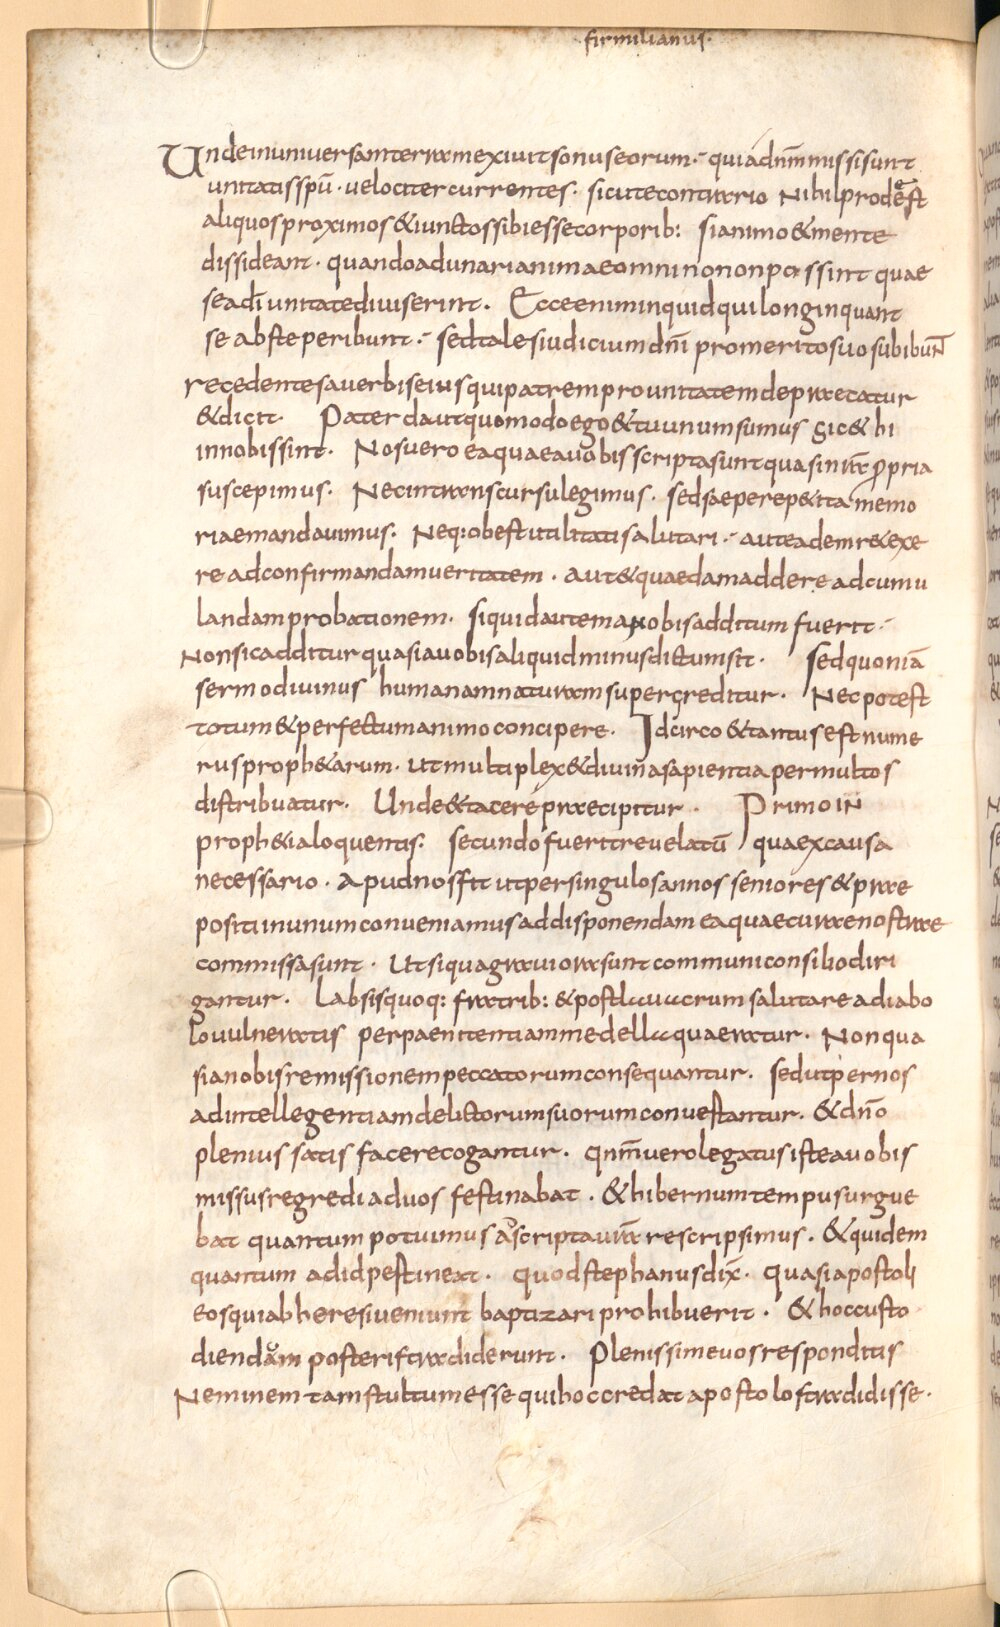 firmilianus·
Undeinuniuersamterramexiuitsonuseorum· quiadnm̅missisunt
unitatisspu̅· uelocitercurrentes· sicutecontrario Nihilprodeest
aliquosproximos&iunctossibiessecorporib: sianimo&mente
dissideant· quandoadunarianimaeomninononpossint quae
seadi̅unitatediuiserint. Ecceeniminquidquilonginquant
se absteperibunt· sedtalesiudiciumdni̅ promeritosuosubibunt
recedentesauerbiseiusquipatremprounitatemdepraecatur
&dicit· Paterdautquomodoego&tuunumsumus sic& hi
innobissint. Nosueroeaquaeauobisscriptasuntquasinr̅a ꝓpria
suscepimus. Necintranscursulegimus. sedsaeperep&itamemo
riaemandauimus. Neq:obestutilitatisalutari· auteademr&exe
re adconfirmandamueritatem. aut&quaedamaddere adcumu
landamprobationem. siquidautemanobisadditumfuerit·
Nonsicadditurquasiauobisaliquidminusdictumsit. sedquonia̅
sermodiuinus humanamnaturamsupergreditur. Necpotest
totum&perfectumanimoconcipere. Idcirco&tantusestnume
rusproph&arum. utmultiplex&diuinasapientiapermultos
distribuatur. Unde&tacerepraecipitur. Primo IN
proph&ialoquentis. secundofueritreuelatu̅ quaexcausa
necessario. Apudnosfit utpersingulosannos seniores&prae
positiinunumconueniamusaddisponendameaquaecuraenostrae
commissasunt. Utsiquagrauiorasuntcommuniconsiliodiri
gantur. Labsisquoq: fratrib: &postlauacrumsalutareadiabo
louulneratis perpaenitentiammedellaquaeratur. Nonqua
sianobisremissionempeccatorumconsequantur. sedutpernos
adintellegentiamdelictorumsuorumconuertantur. &dno̅
plenius satis facerecogantur. Qnm̅uerolegatusisteauobis
missusregrediaduos festinabat. &hibernumtempusurgue
bat quantum potuimus ascriptaur̅a rescripsimus. &quidem
quantum adidpestinext. quodstephanusdix̅. quasiapostoli
eosquiabheresiueniunt baptizariprohibuerit. &hoccusto
diendam posteriftradiderunt. Plenissimeuosresponditis
Neminemtamstultumessequihoccredatapostolostradidisse.